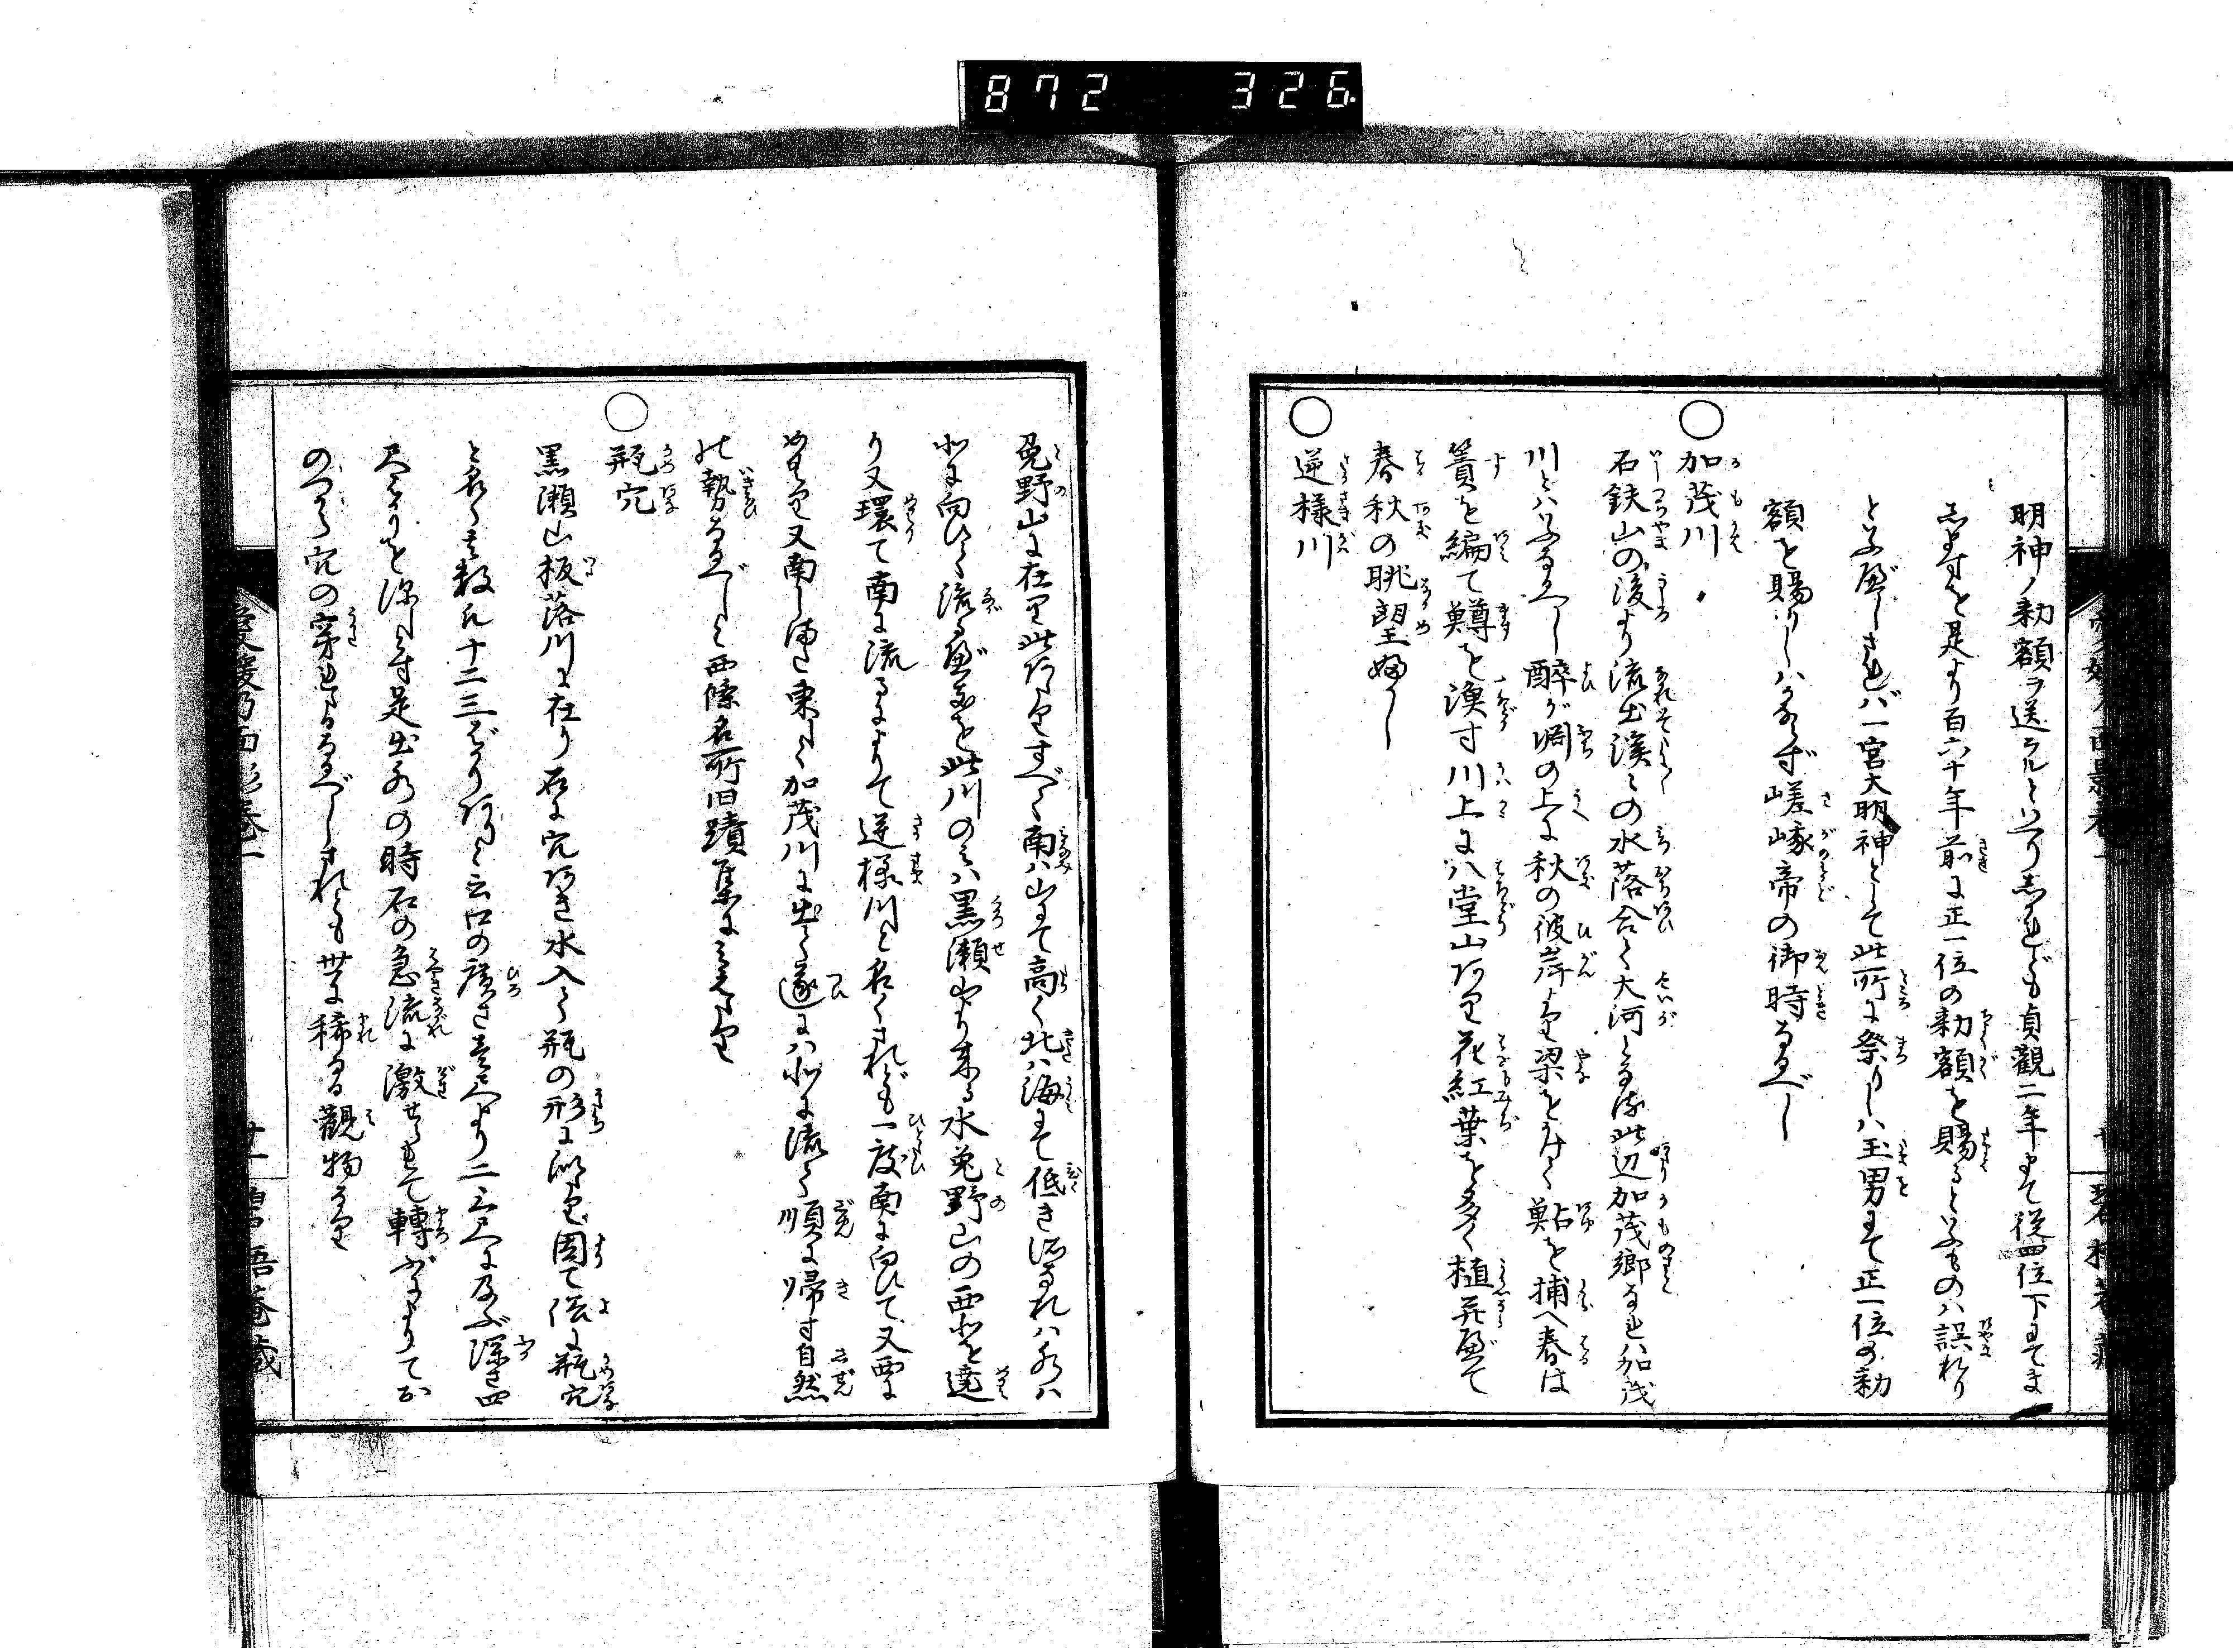 872 326
明神ノ勅額ヲ送ラルトいへり然れども貞觀二年まて従四位下にてま
しますを是より百六十年前に正一位の勅額を賜るといふものハ誤れり
といふべしされバ一宮大明神として此所に祭りしハ玉男にて正一位の勅
額を賜りしハかならず嵯峨帝の御時なるべし
○加茂川
石鉄山の後より流出溪々の水落合て大河となる此辺加茂郷なれハ加茂
川とハいふなるべし醉が渕の上に秋の彼岸より梁をかけて鮎を捕へ春は
簀を編て鱒を漁す川上に八堂山あり花紅葉を多く植並べて
春秋の眺望
○逆様川
兎野山に在り此辺りすべて南ハ山にて高く北ハ海にて低き故なれハ水ハ
北に向ひて流るべきを此川のミハ黒瀬山より来る水兎野山の西北を遶
り又環て南に流るによりて逆様川と名くされども一度南に向ひて又西に
めぐり又南し海に東して加茂川に出て遂にハ北に流て順に帰す自然
の勢なるべしと西條名所旧蹟集に見えたり
○瓶穴
黒瀬山板落川に在り石に穴ありき水入て瓶の形に似たり因て俗に瓶穴
と名く其数凡十二三ばかりありと云口の廣さ壱尺より二三尺に及ぶ深さ四
尺ばかりを深しとす是出水の時石の急流に激せられて轉ぶによりてお
のづから穴の穿れたるなるべしされども世に稀なる觀物なり
愛媛乃面影巻一
廿一
碧梧菴蔵